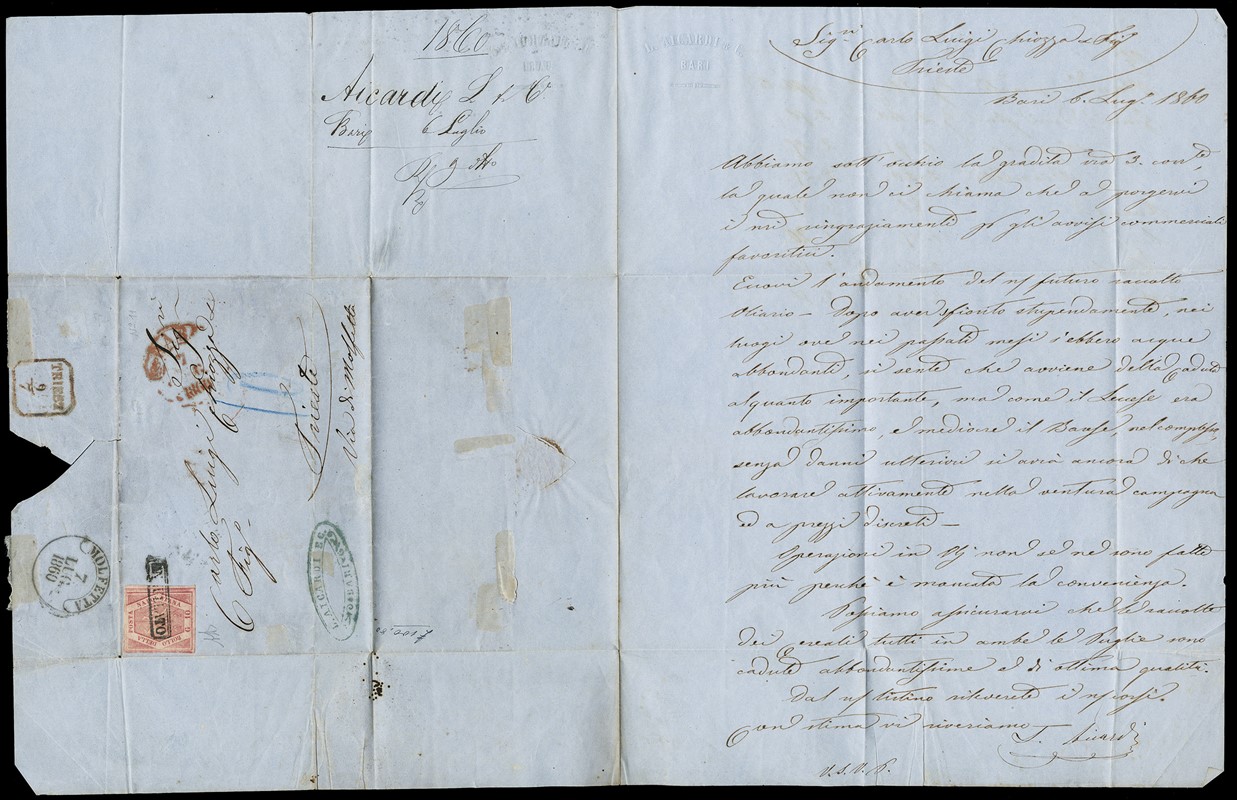 1860
Aicardi L & C.
Bari 6 Luglio
L. AICARDI & C.
BARI
Sig.ri Carlo Luigi Chiozza & Fig.
Trieste
Bari 6. Lug. 1860
Abbiamo sott'occhio la gradita vra 3. corr.te,
la quale non ci chiama che a porgervi
i nri ringraziamenti gli avvisi commerciali
favoritici.
Eccovi l'andamento del futuro raccolto
Oliario - Dopo aver sfiorito stupendamente, nei
luoghi ove nei passati mesi s'ebbero acque
abbondanti, si sente che avviene della caduta
alquanto importante, ma come il Leccese era
abbondantissimo, e mediocre il Barese, nel complesso,
senza danni ulteriori si avrà ancora di che
lavorare attivamente nella ventura campagna
ed a prezzi discreti -
Operazioni in non se ne sono fatte
più perchè è mancata la convenienza.
Possiamo assicurarvi che le raccolte
dei cereali tutti in ambe le Puglie sono
cadute abbondantissime e di ottima qualità.
Dal listino rileverete i corsi.
Con stima vi riveriamo
Aicardi
V.S.V.P.
Sig.ri
Carlo Luigi Chiozza &
Fig.
Trieste
Via di Molfetta
TRIEST
MOLFETTA
7
LUG.
1860
ANNULLATO
BOLLO DELLA POSTA NAPOLETANA
L. AICARDI E C.